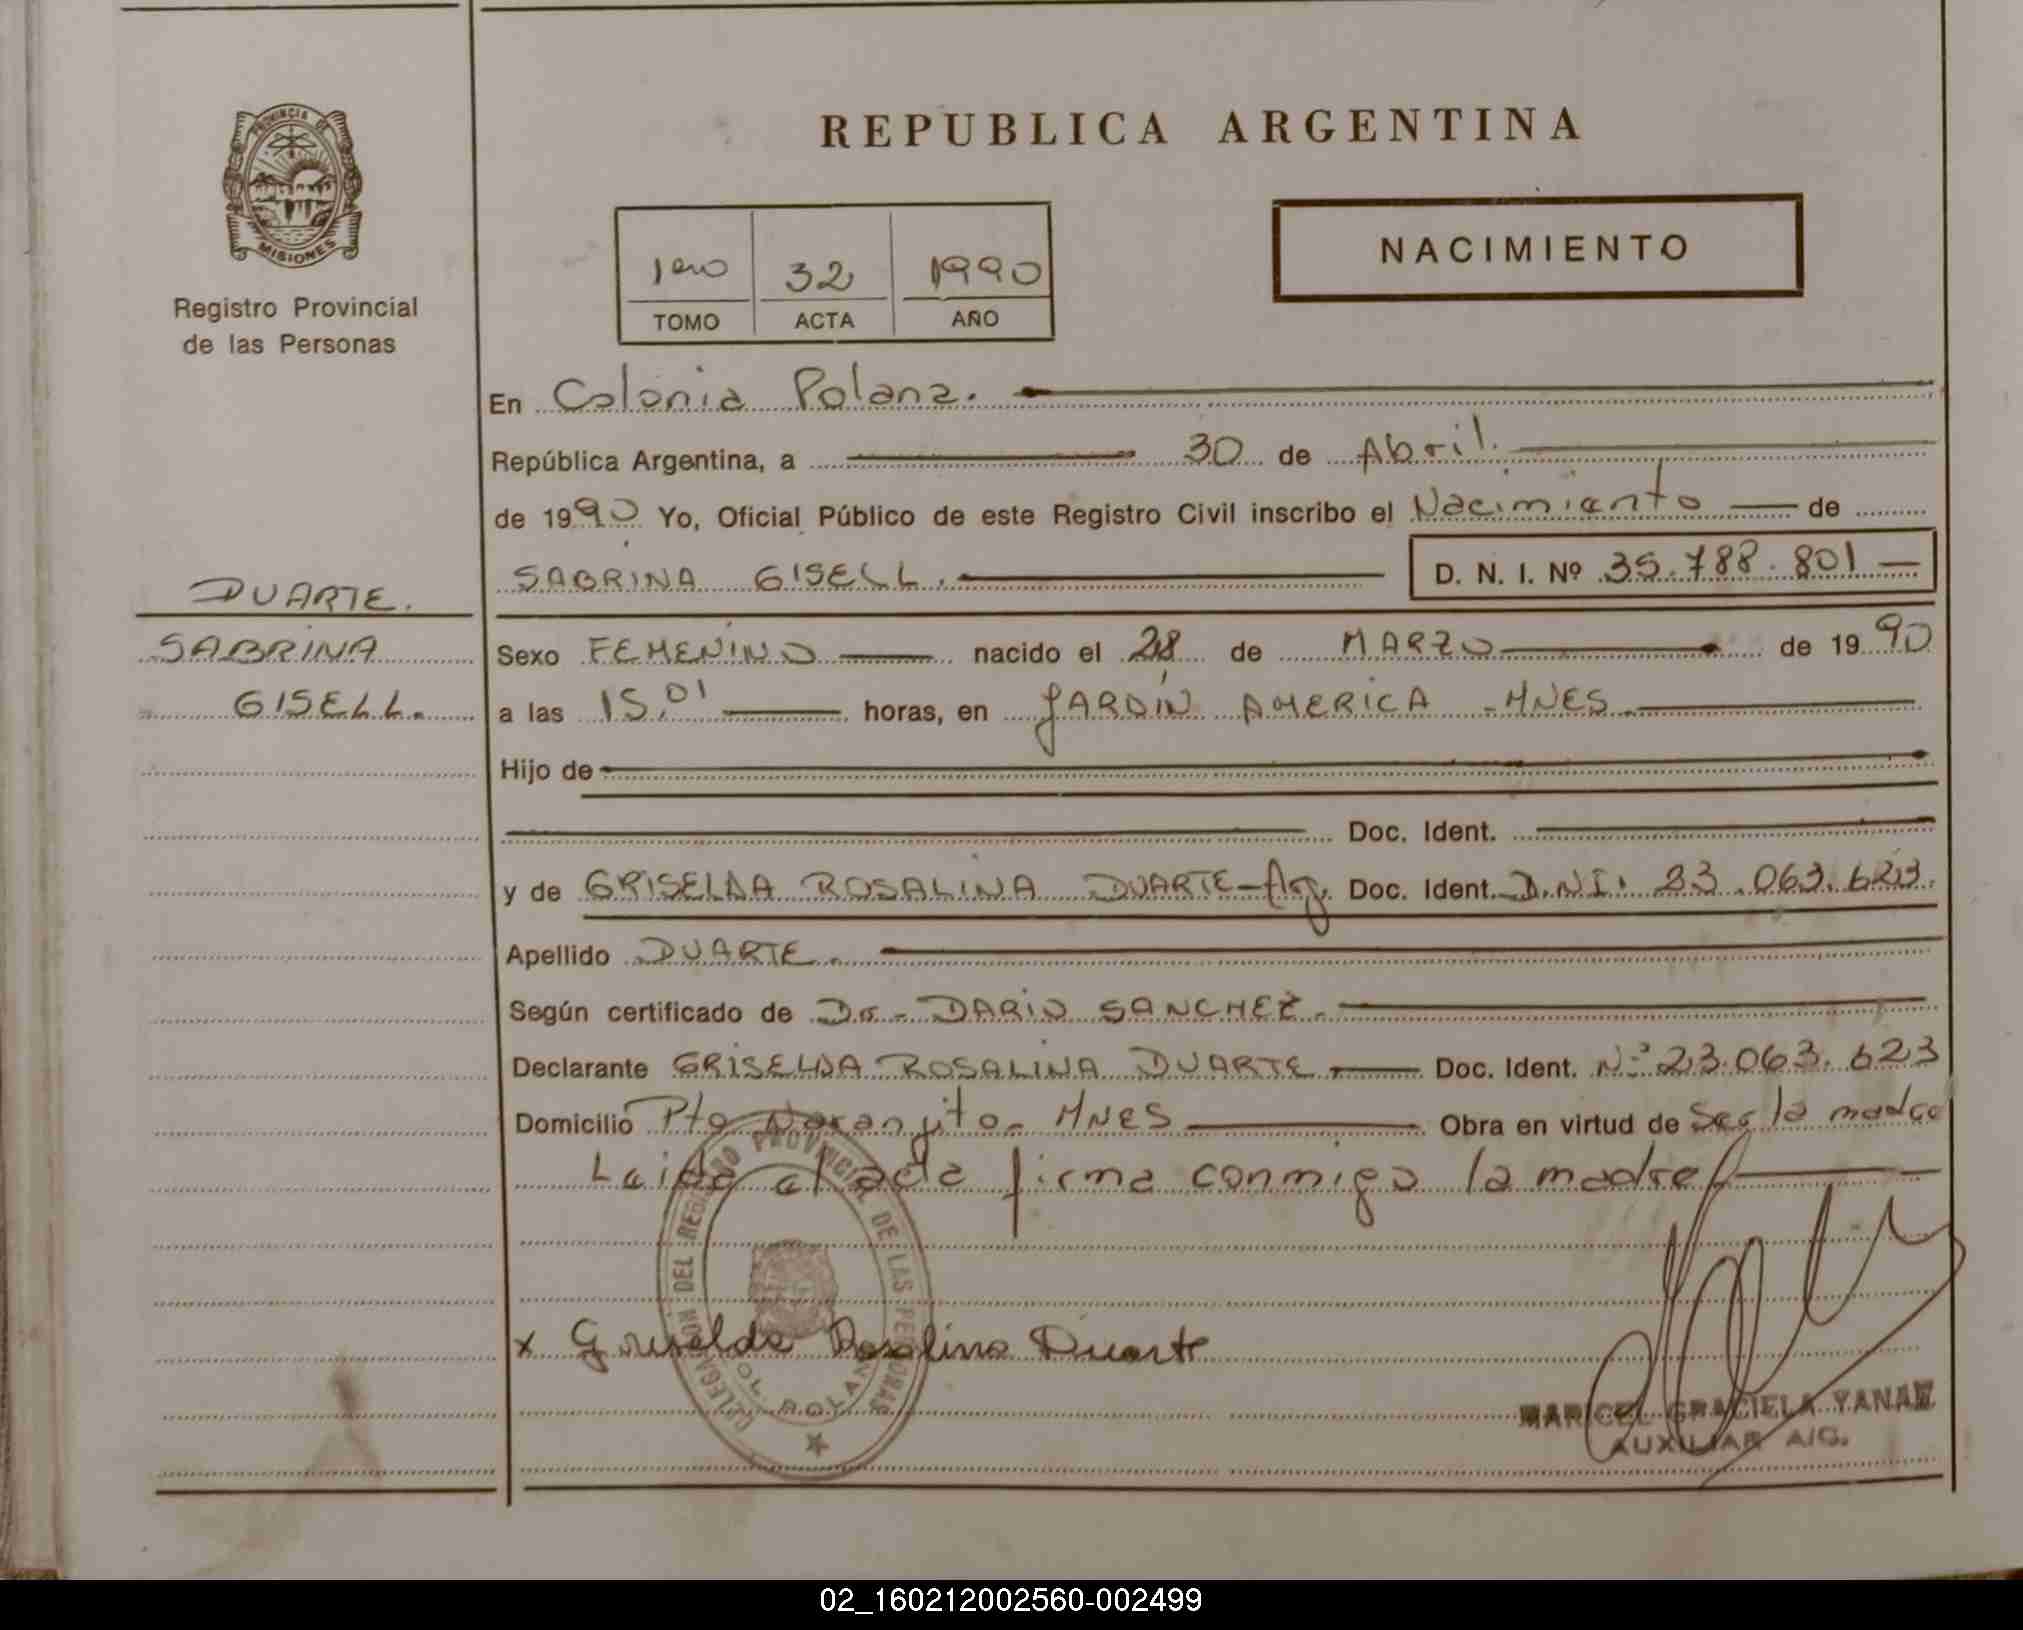 PROVINCIA DE
MISIONES
Registro Provincial
de las Personas
REPUBLICA ARGENTINA
1ero 32 1990
TOMO ACTA AÑO
NACIMIENTO
En Colonia Polana.
República Argentina, a 30 de Abril.
de 1990 Yo, Oficial Público de este Registro Civil inscribo el Nacimiento de
SABRINA GISELL. D. N. I. Nº 35.788.801
DUARTE.
SABRINA
GISELL.
Sexo FEMENINO nacido el 28 de MARZO de 1990
a las 15,01 horas, en JARDIN AMERICA - MNES.
Hijo de
Doc. Ident.
y de GRISELDA ROSALINA DUARTE - Arg. Doc. Ident. D.N.I. 23.063.623.
Apellido DUARTE.
Según certificado de Dr. DARIO SANCHEZ.
Declarante GRISELDA ROSALINA DUARTE. Doc. Ident. Nº 23.063.623
Domicilio Pto Naranjito - MNES Obra en virtud de Ser la madre
Leida el acta firma conmigo la madre
x Griselda Rosalina Duarte
DELEGACION DEL REGISTRO PROVINCIAL DE LAS PERSONAS
COL. POLANA
MARICEL GRACIELA YANAK
AUXILIAR A/C.
02_160212002560-002499